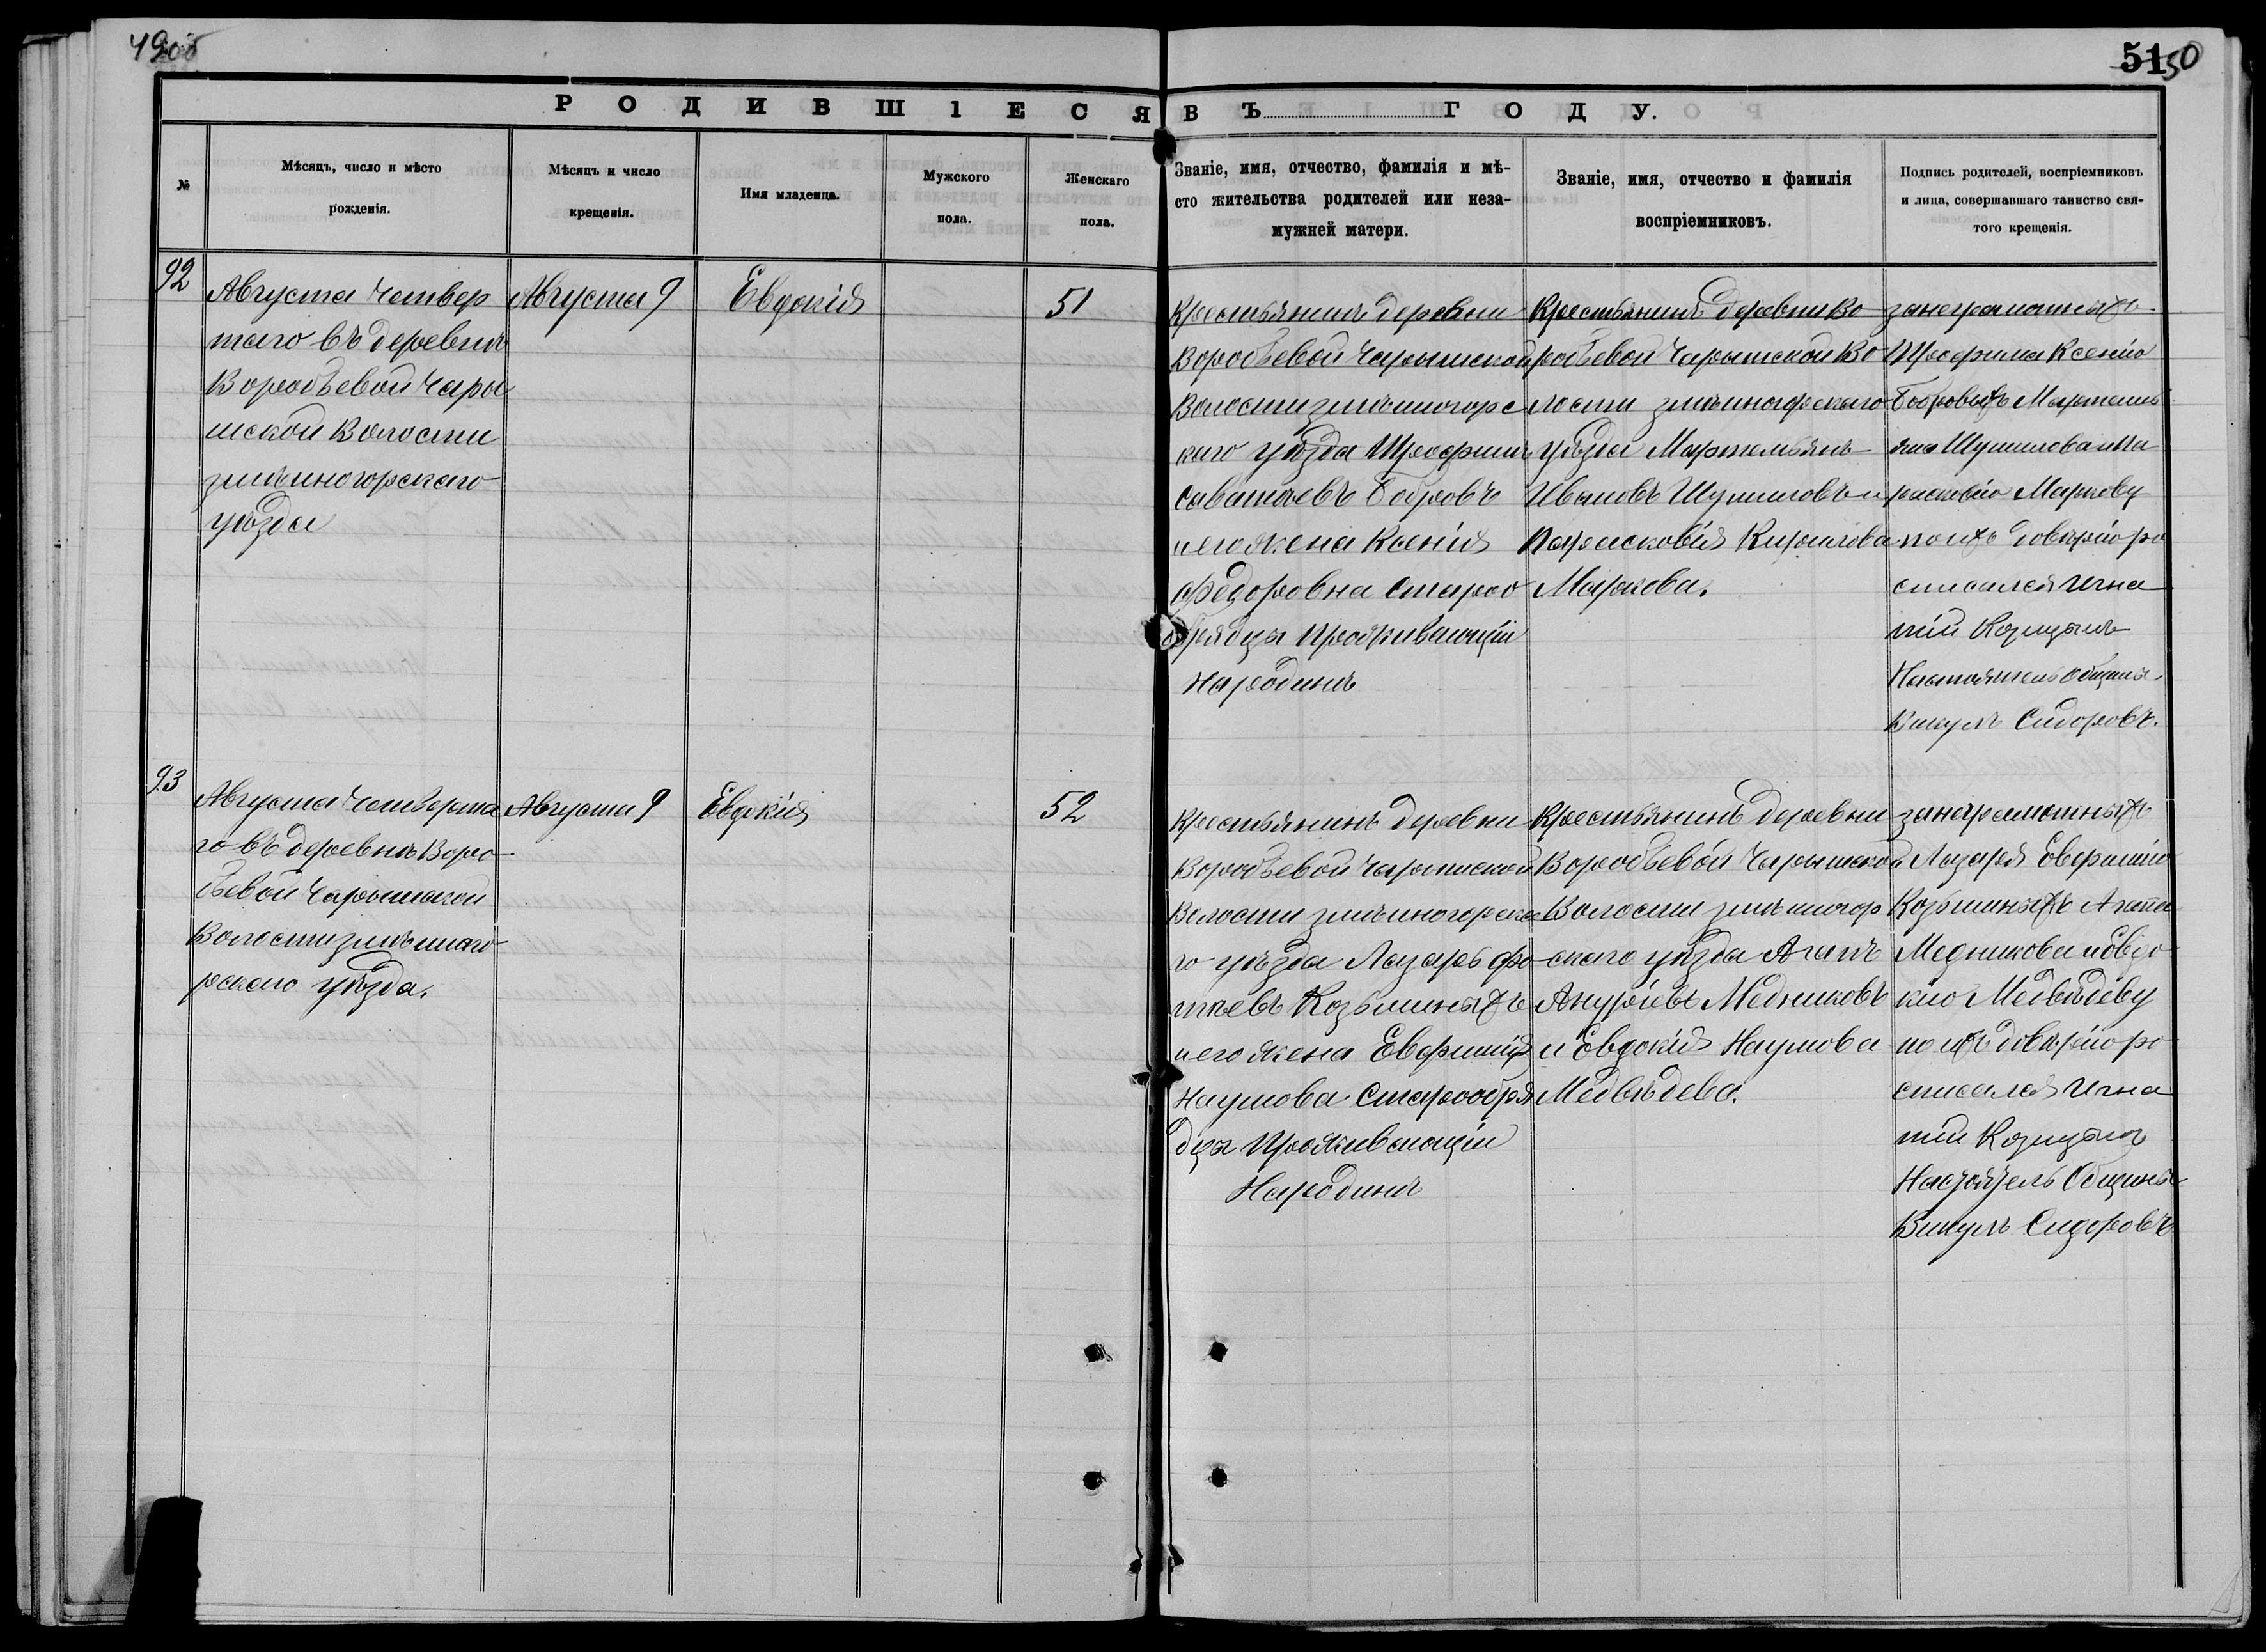 49об
51 50
РОДИВШІЕСЯ ВЪ ГОДУ.
№
Мѣсяцъ, число и мѣсто
рожденія.
Мѣсяцъ и число
крещенія.
Имя младенца.
Мужского
пола.
Женскаго
пола.
Званіе, имя, отчество, фамилія и мѣ-
сто жительства родителей или неза-
мужней матери.
Званіе, имя, отчество и фамилія
воспріемниковъ.
Подпись родителей, воспріемниковъ
и лица, совершавшаго таинство свя-
того крещенія.
92
Августа Четвер
таго въ деревнѣ
Воробьевой Чары
шской Волости
змѣиногорскаго
уѣзда
Августа 9
Евдокія
51
Крестьянинъ деревни
Воробьевой Чарышской
Волости змѣиногорс
каго уѣзда Трофимъ
Саватѣевъ Бобровъ
и его жена Ксенія
Федоровна Старо
обрядцы Проживающіи
На родинѣ
Крестьянинъ деревни Во
робьевой Чарышской Во
лости змѣиногорскаго
уѣзда Мартемьянъ
Ивановъ Шумиловъ и
Парасковія Кирилова
Маркова.
за неграмотныхъ
Трофима Ксенію
Бобровыхъ Мартемь
яна Шумилова и Па
расковію Маркову
по ихъ довѣрію ро
списался Игна
тій Казицынъ
Настоятель общины
Викулъ Сидоровъ.
93
Августа Четверта
го въ деревнѣ Воро
бьевой Чарышской
Волости змѣиного
рскаго уѣзда.
Августа 9
Евдокія
52
Крестьянинъ деревни
Воробьевой Чарышской
Волости змѣиногорска
го уѣзда Лазарь Фо
тѣевъ Козьминыхъ
и его жена Евфимія
Наумова Старообря
дцы Проживающіи
На родинѣ
Крестьянинъ деревни
Воробьевой Чарышской
Волости змѣиногор
скаго уѣзда Агапъ
Ануфріевъ Медниковъ
и Евдокія Наумова
Медвѣдева.
за неграмотныхъ
Лазаря Евфимію
Козьминыхъ Агапа
Медникова и Евдо
кію Медвѣдеву
по ихъ довѣрію ро
списался Игна
тій Казицынъ
Настоятель Общины
Викулъ Сидоровъ